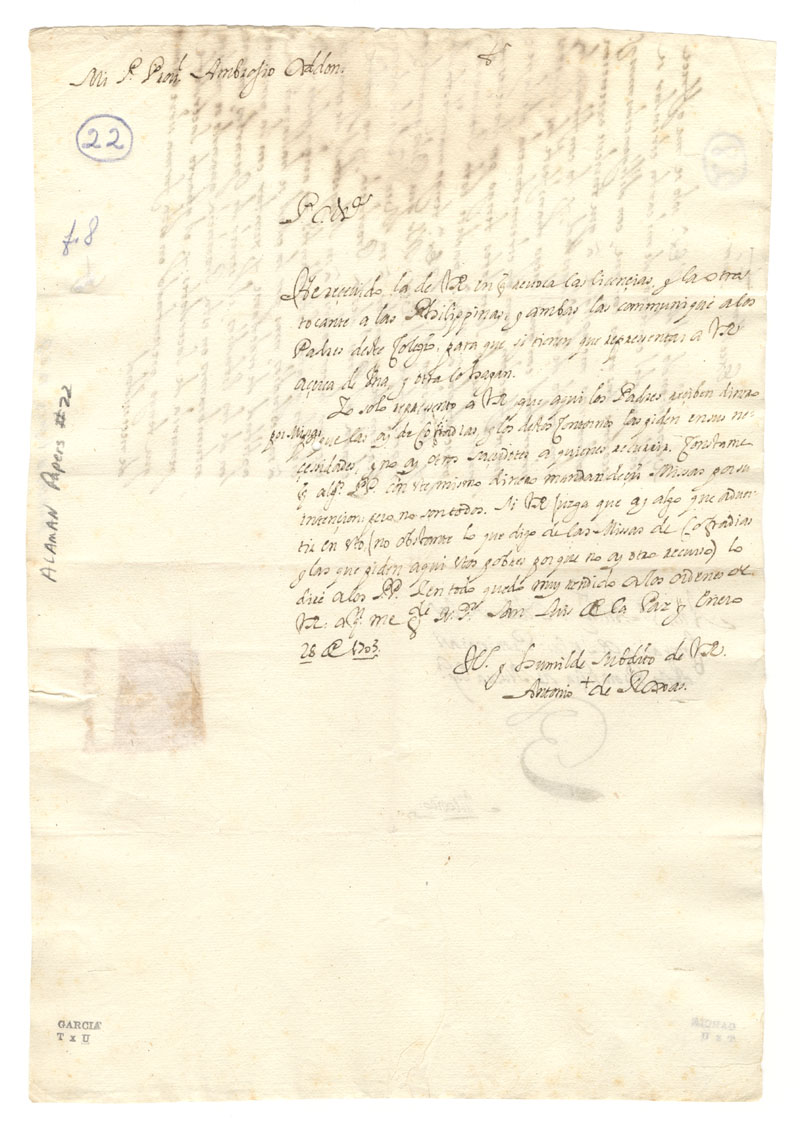 ✝
Mi P. Proul. Ambrosio Oddon.
22
f.8
P. C. Vª
He recevido la de VR en q revoca las licencias, y la otra
tocante a las Philippinas, y ambas las communiqué a los
Padres deste Colegio, para que, si tienen que representar a VR
açerca de una, y otra lo hagan.
Yo solo represento a VR que aqui los Padres reciben dinero
por Missas
que las ay de Cofradias, y los destos Contornos las piden en sus ne-
cessidades, y no ay otros sacerdotes a quienes recurrir. Constame
q algs. PP. con este mismo dinero mandan decir Missas por su
intencion; pero no son todos. Si VR juzga que ay algo que adver-
tir en esto (no obstante lo que digo de las Missas de Cofradias
y las que piden aqui estos pobres porque no ay otro recurso) lo
diré a los PP. Y en todo quedo muy rendido a los ordenes de
VR. a q. me gde N. Sr. San Luis de la Paz y Enero
28 de 1703.
Hº. y humilde subdito de VR.
Antonio ✝ de Roxas.
ALAMAN Papers #22
GARCIA
T x U